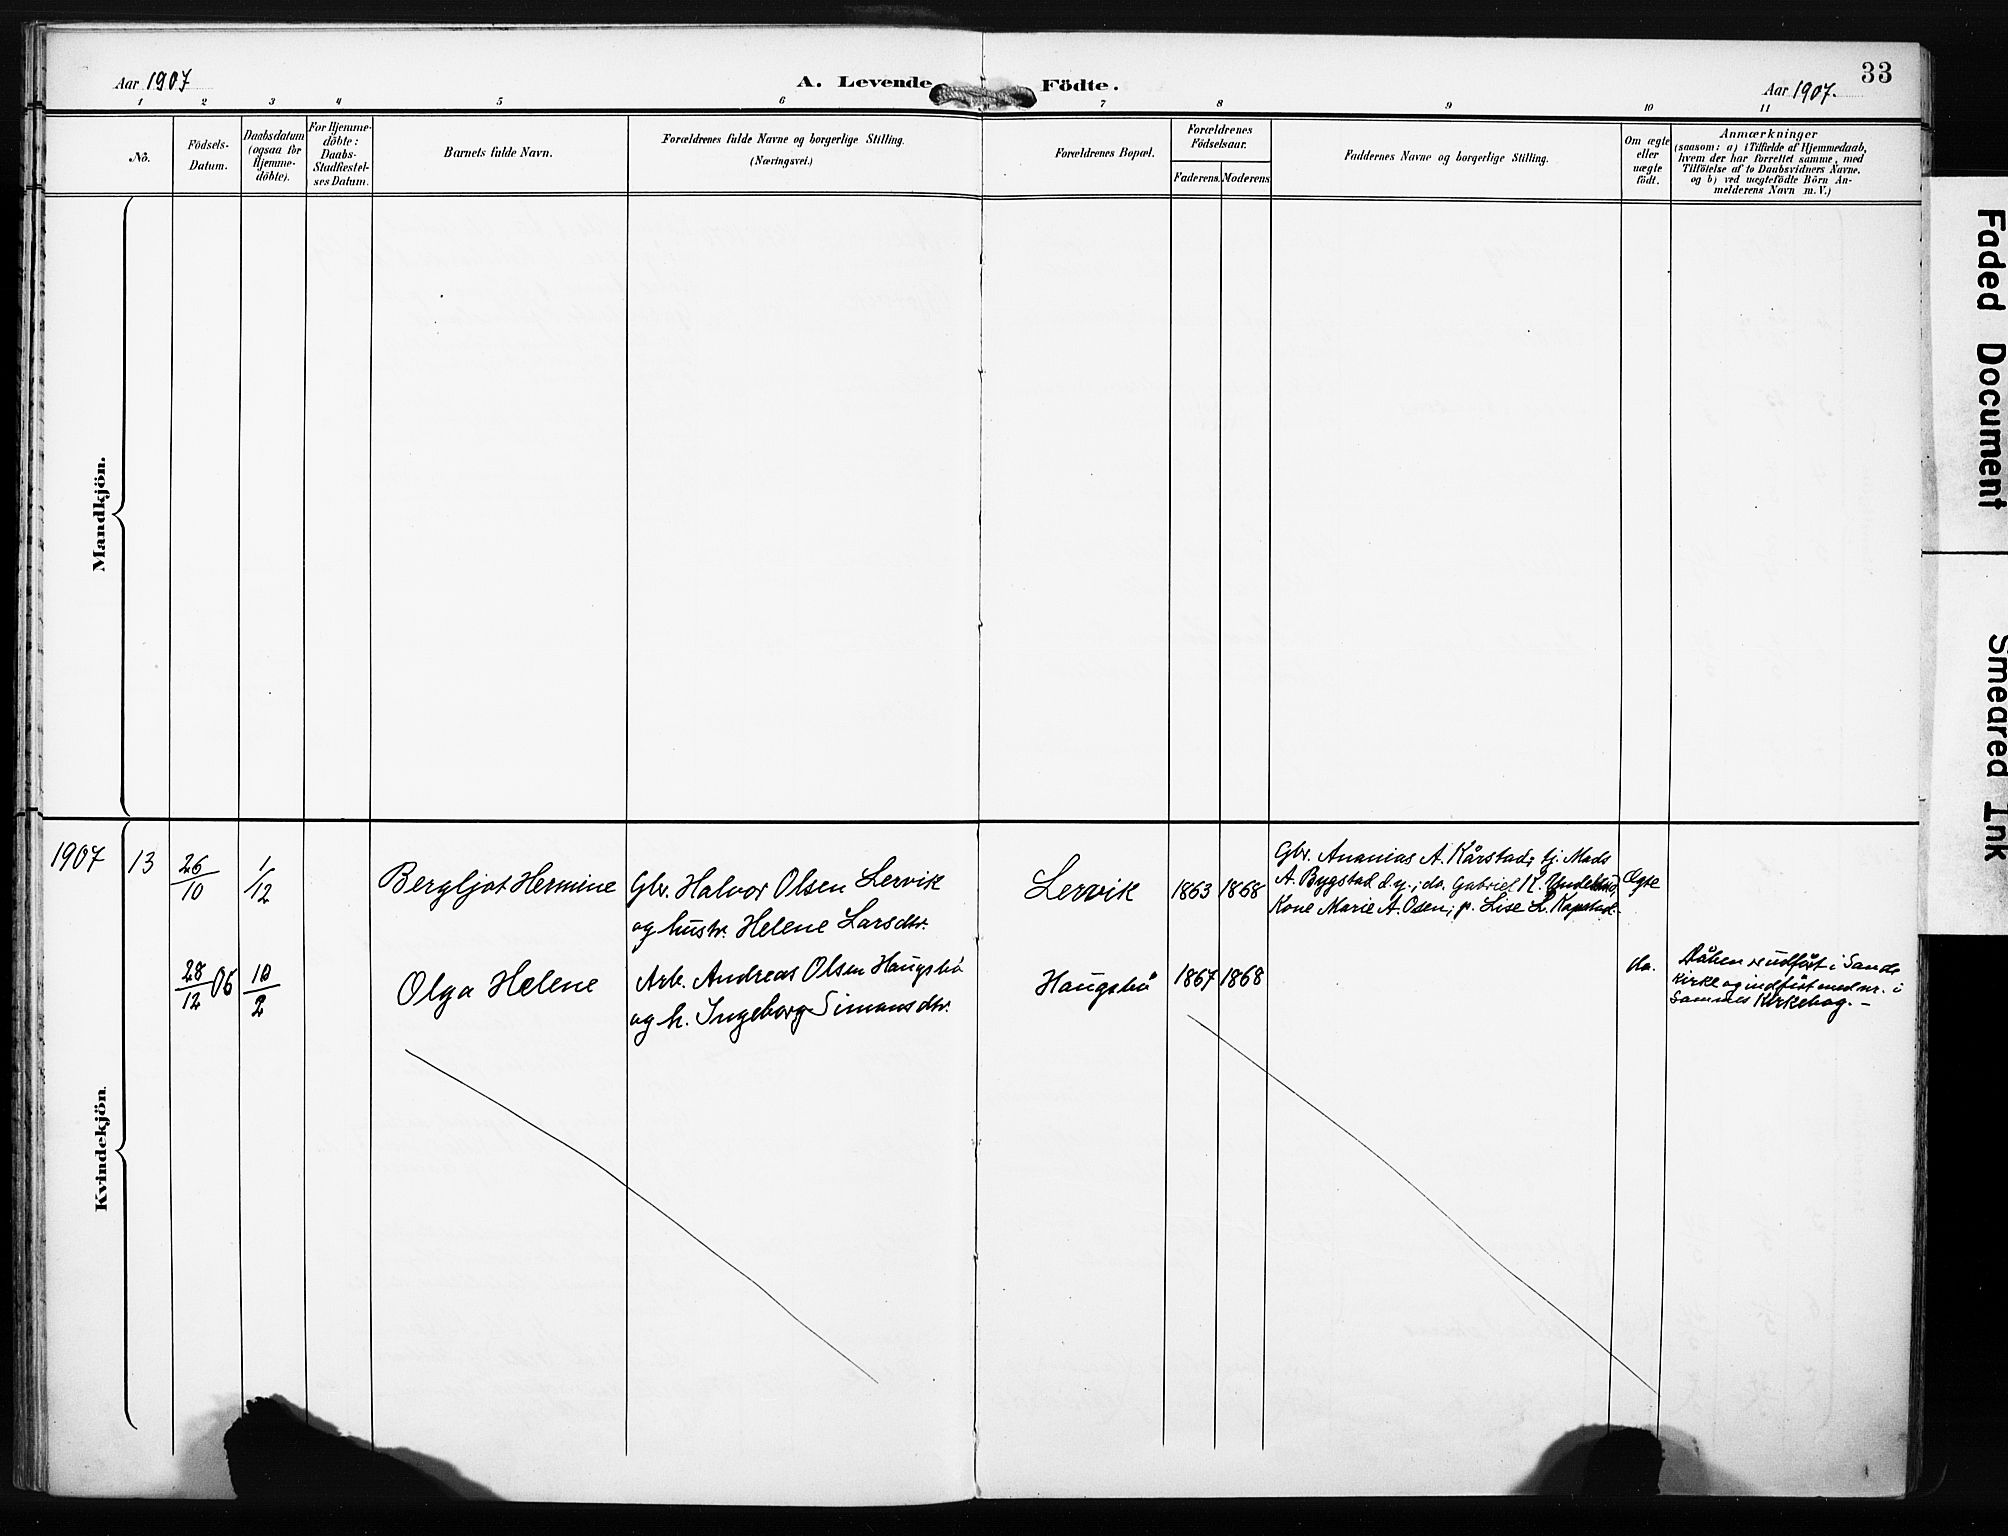 33
Aar 1907
A. Levende Födte.
Aar 1907.
1 2 3 4 5 6 7 8 9 10 11
No.
Födsels-
Datum.
Daabsdatum
(ogsaa for
Hjemme-
döbte).
For Hjemme-
döbte:
Daabs-
Stadfæstel-
ses Datum.
Barnets fulde Navn.
Forældrenes fulde Navne og borgerlige Stilling.
(Næringsvei.)
Forældrenes Bopæl.
Forældrenes
Födselsaar.
Faderens. Moderens
Faddernes Navne og borgerlige Stilling.
Om ægte
eller
uægte
født.
Anmærkninger
(saasom: a) i Tilfælde af Hjemmedaab,
hvem der har forrettet samme, med
Tilföielse af to Daabsvidners Navne,
og b) ved uægtefödte Börn An-
melderens Navn m. V.)
Mandkjön.
Kvindekjön.
1907 13 26/10 1/12
Bergljot Hermine
Gbr. Halvor Olsen Lervik
og hustr. Helene Larsdtr.
Lervik
1863 1868
Gbr. Ananias A. Kårstad; tj. Mads
A. Bygstad d.y.; do. Gabriel K.
Kone Marie A. Osen; p. Lise L. Kapstad.
Ægte
28/12 06 10/2
Olga Helene
Arb. Andreas Olsen Haugsbö
og h. Ingeborg Simonsdtr.
Haugsbö
1867 1868
do.
Dåben er udført i Sande
Kirke og indført med nr. i
Sammes Kirkebog. –
Faded Document
Smeared Ink